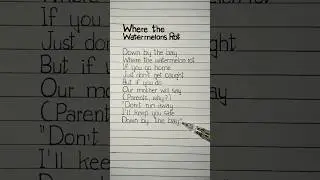 Where the
Watermelons Rot
Down by the bay
Where the watermelon rot
If you go home
Just don't get caught
But if you do
Our mother will say
(Parents, why?)
"Don't run away
I'll keep you safe
Down by the bay"
If you
Just don't
But if
Our mother
(Parent
"Don't
I'll keep
home
caught
do
will say
hy?)
way
safe